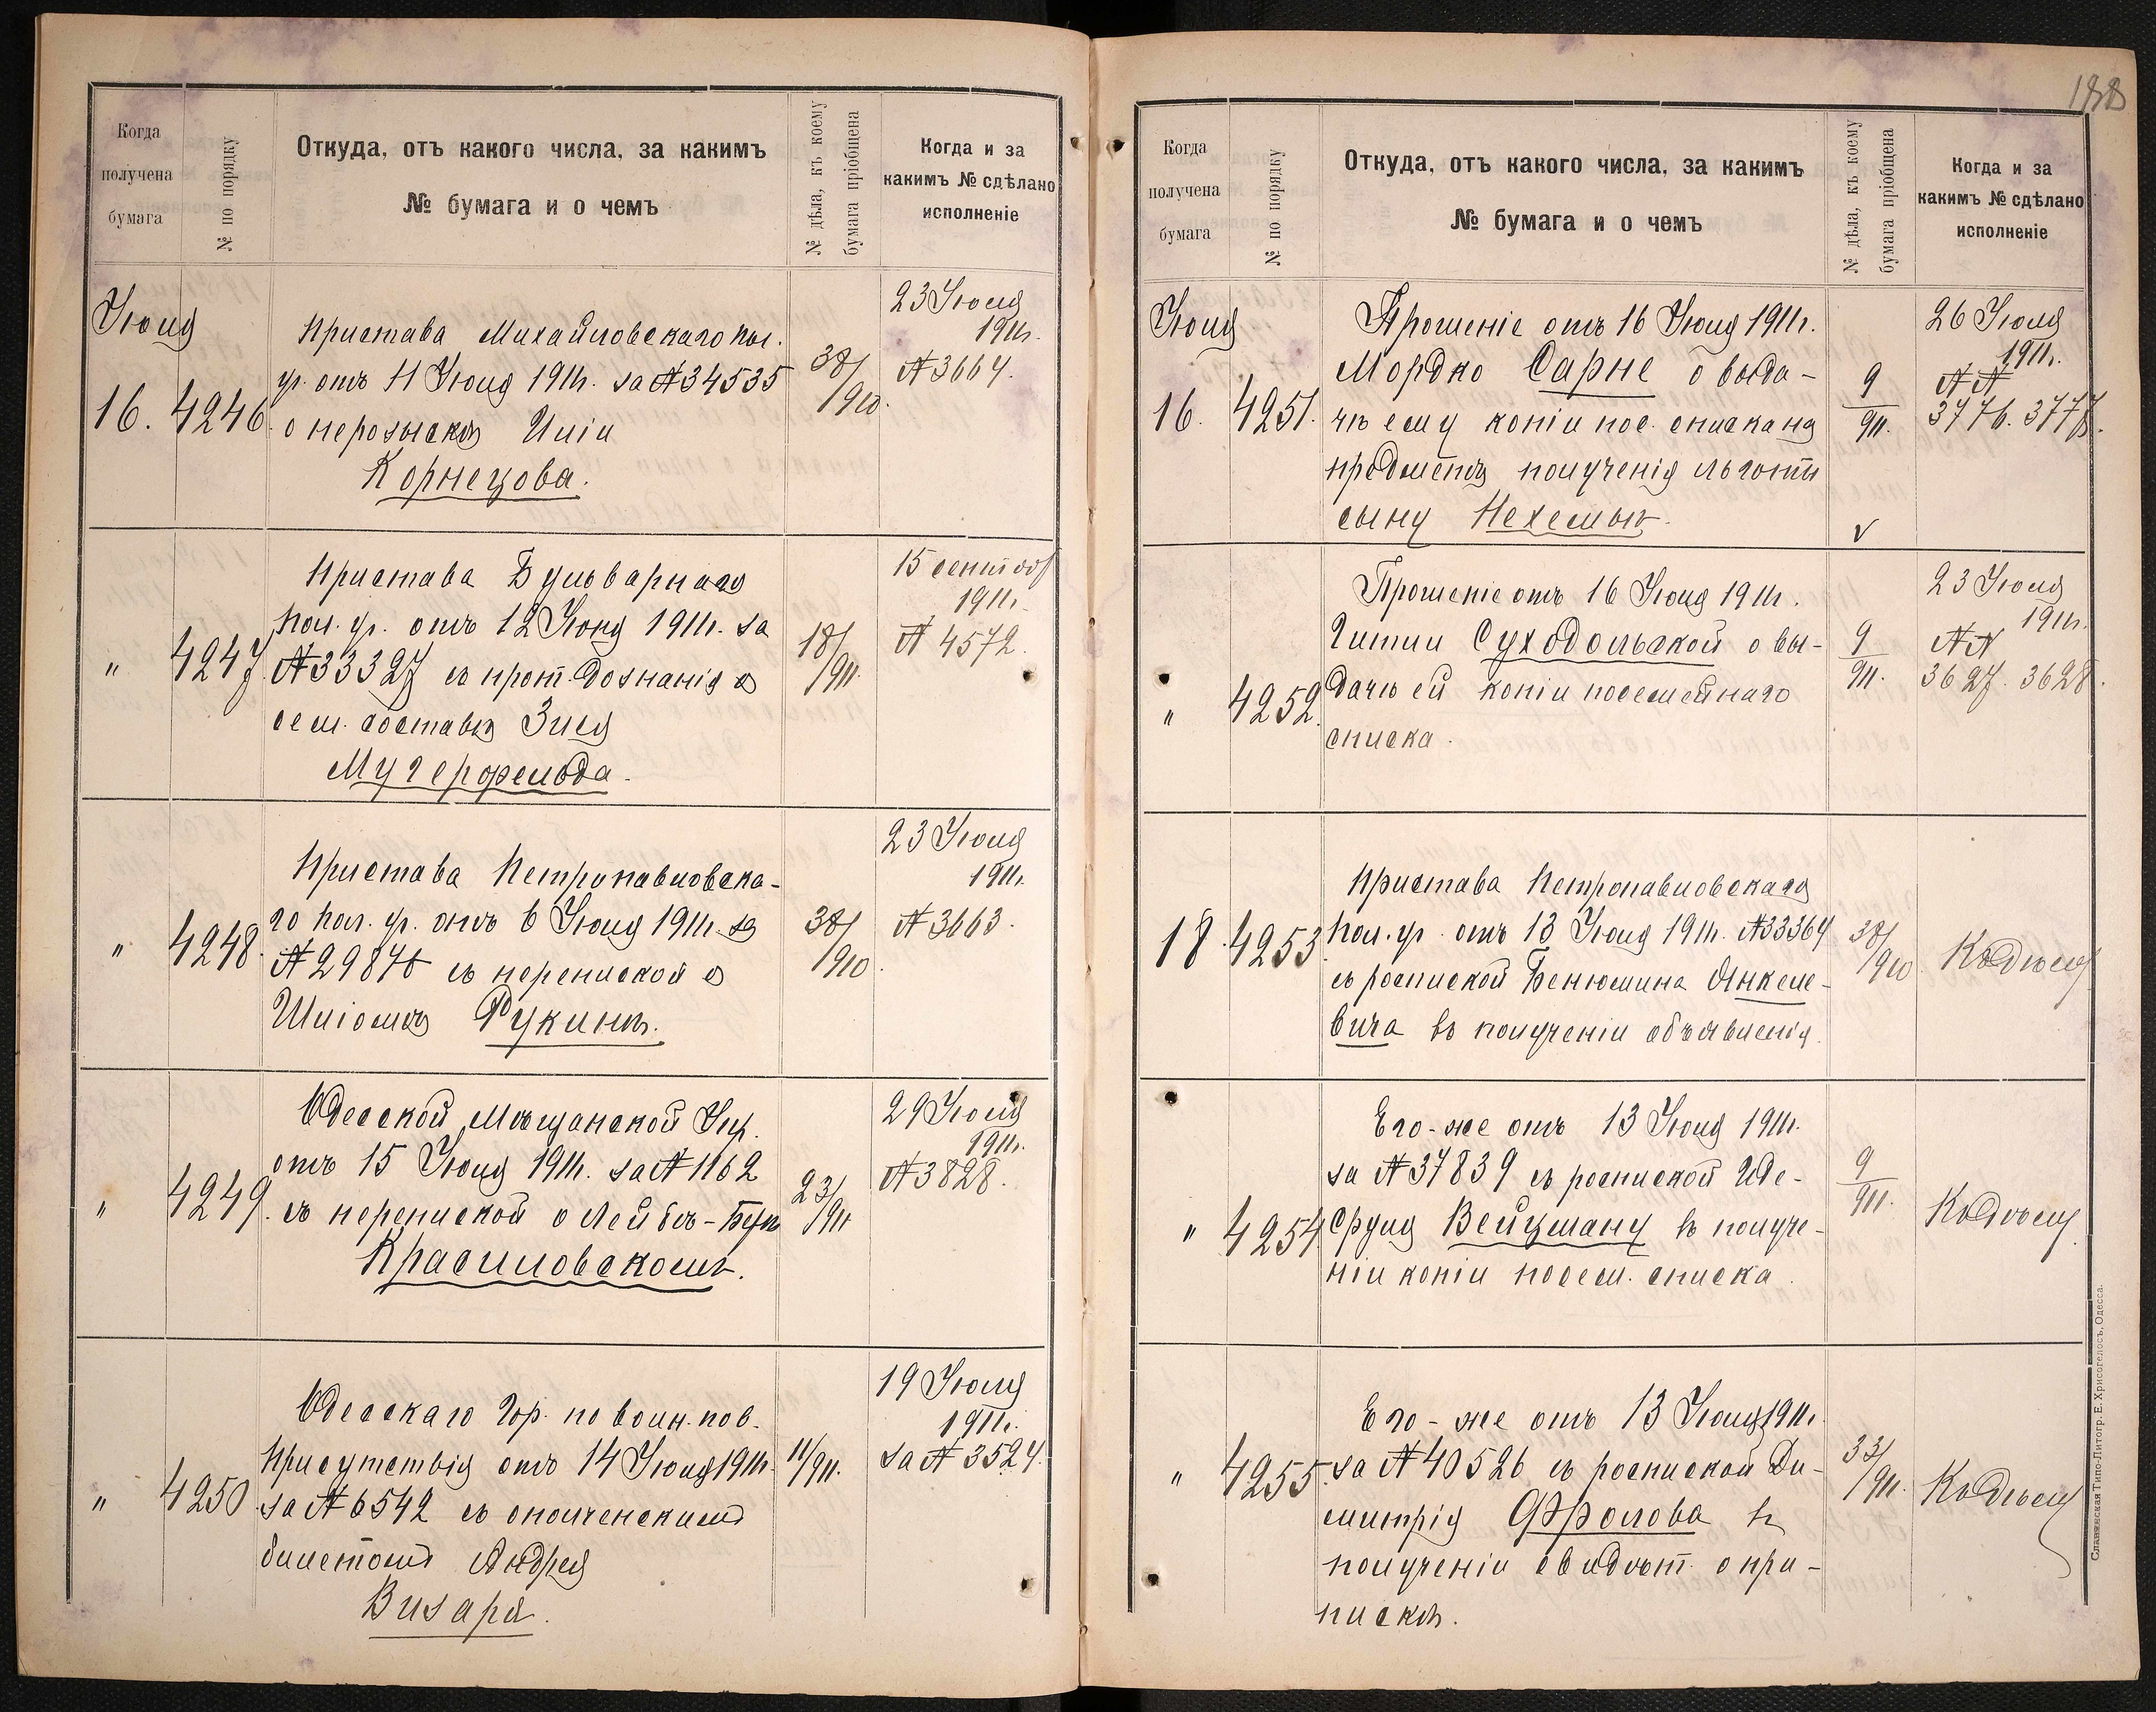 Когда
получена
бумага
№ по порядку
Откуда, отъ какого числа, за какимъ
№ бумага и о чемъ
№ дѣла, къ коему
бумага пріобщена
Когда и за
какимъ № сдѣлано
исполненіе
Іюня
16. 4246.
Пристава Михайловскаго пол.
уч. отъ 11 Іюня 1911г. за №34535
о нерозыскѣ Иліи
Корнецова.
38/910.
23 Іюня
1911г.
№3664.
" 4247.
Пристава Бульварнаго
пол. уч. отъ 12 Іюня 1911г. за
№33327 съ прот. дознанія о
сем. составѣ Зися
Мучерфельда.
18/911.
15 сентября
1911г.
№ 4572.
" 4248.
Пристава Петропавловска-
го пол. уч. отъ 6 Іюня 1911г. за
№29876 съ перепиской о
Шліомѣ Фукинѣ.
38/910.
23 Іюня
1911г.
№3663.
" 4249.
Одесской Мѣщанской Упр.
отъ 15 Іюня 1911г. за №1162
съ перепиской о Лейбѣ-Берѣ
Красиловскомъ.
23/911
29 Іюня
1911г.
№3828.
" 4250.
Одесскаго Гор. по воин. пов.
Присутствія отъ 14 Іюня 1911г.
за №6542 съ ополченскимъ
билетомъ Андрея
Визаря.
11/911.
19 Іюня
1911г.
за № 3524.
188
Когда
получена
бумага
№ по порядку
Откуда, отъ какого числа, за какимъ
№ бумага и о чемъ
№ дѣла, къ коему
бумага пріобщена
Когда и за
какимъ № сдѣлано
исполненіе
Іюня
16. 4251.
Прошеніе отъ 16 Іюня 1911г.
Мордко Сарне о выда-
чѣ ему копіи пос. списка на
предметъ полученія льготы
сыну Нехемыѣ.
9/911.
v
26 Іюня
1911г.
№№
3776. 3777.
" 4252.
Прошеніе отъ 16 Іюня 1911г.
Читли Суходольской о вы-
дачѣ ей копіи посемейнаго
списка.
9/911.
23 Іюня
1911г.
№№
3627. 3628.
18. 4253.
Пристава Петропавловскаго
пол. уч. отъ 13 Іюня 1911г. №33364
съ роспиской Бенюмина Янкеле-
вича въ полученіи объявленія.
38/910
Къ дѣлу
" 4254.
Его-же отъ 13 Іюня 1911г.
за №37839 съ роспиской Иде-
Сруля Вейцману въ получе-
ніи копіи посем. списка.
9/911.
Къ дѣлу.
" 4255.
Его-же отъ 13 Іюня 1911г.
за №40526 съ роспиской Ди-
митрія Фролова въ
полученіи свидѣт. о при-
пискѣ.
33/911.
Къ дѣлу
Славянская Типо-Литогр. Е. Хрисогелосъ, Одесса.